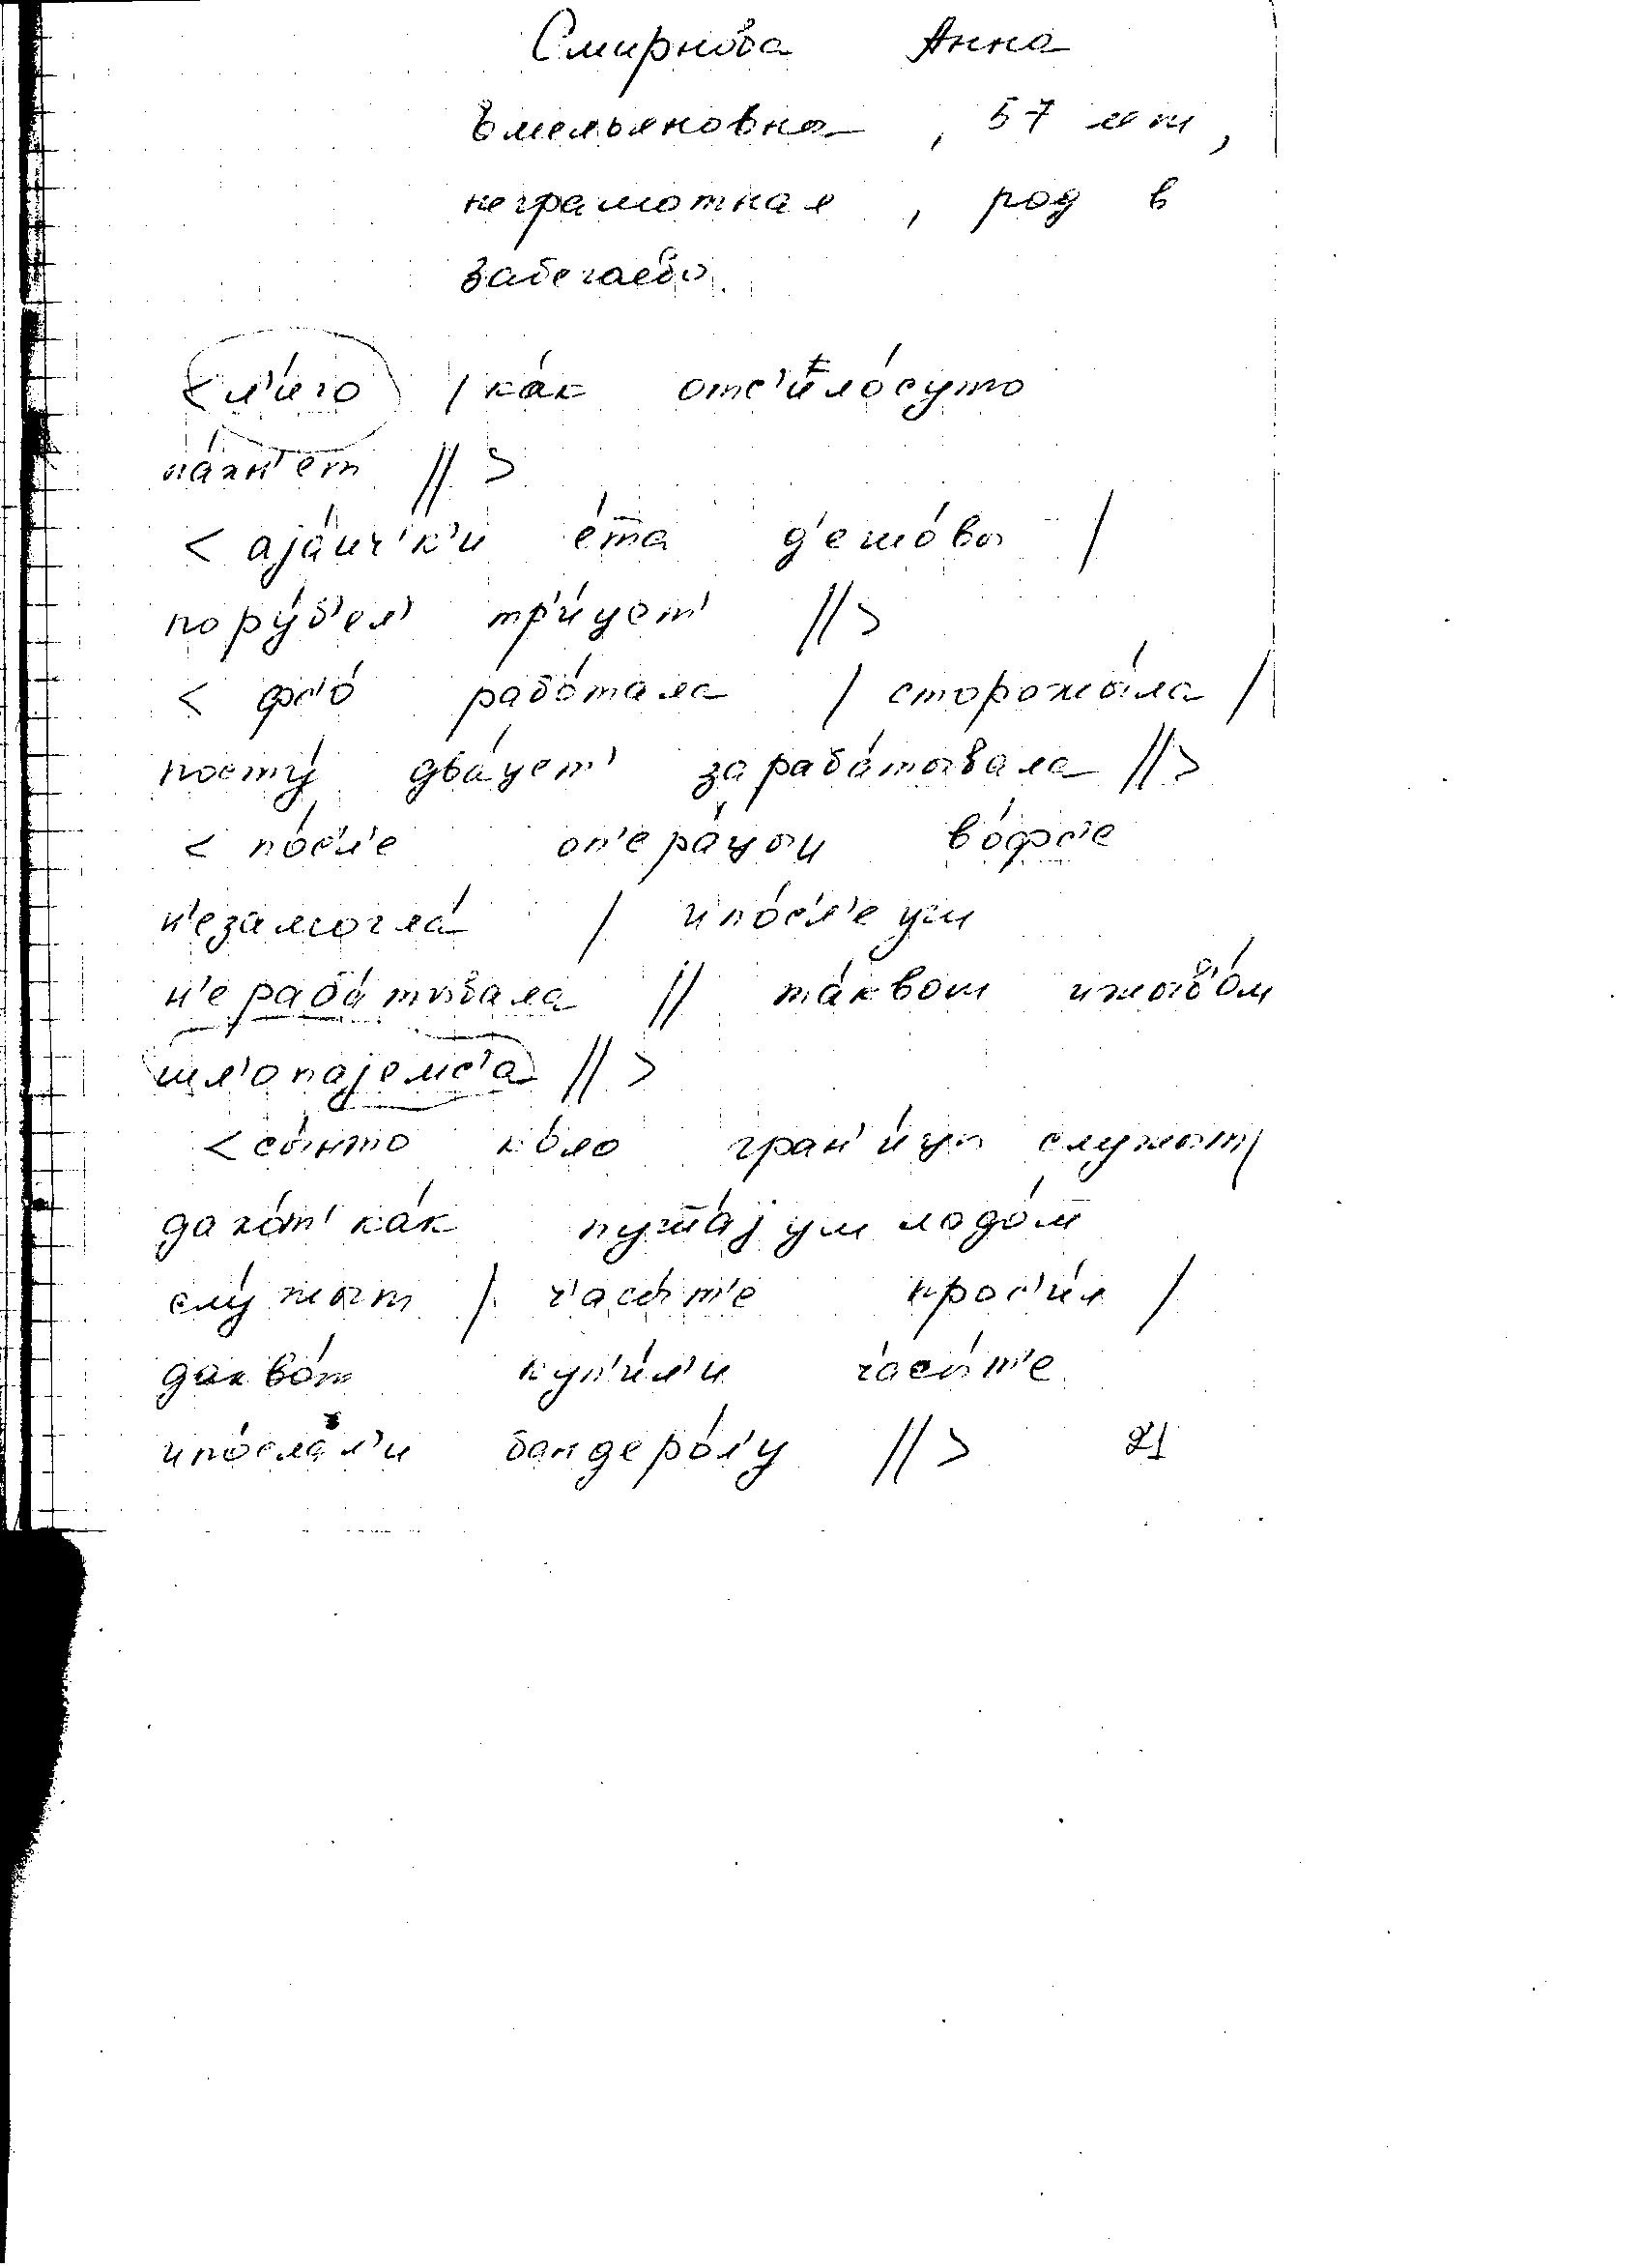 Смирнова Анна
Емельяновна, 57 лет,
неграмотная, род в
Забегаево.
< л'и́го / ка́к отс'ило́суто
па́хн'ет // >
< аjа́ич'к'и е́та д'ешо́вы /
пору́б'ел' тр'и́цет' // >
< фс'о́ рабо́тала / сторожы́ла /
посту́ два́цет' зараба́тывала // >
< по́сл'е оп'ера́цыи во́фс'е
н'езамогла́ / ипо́сл'е уш
н'ераба́тывала // та́квот ижыв'о́м
шл'о́паjемс'а // >
< сы́нто ко́ло гран'и́цы служыт /
дахо́т' ка́к пуста́j ум лодо́м
слу́жыт / ч'асы́т'е прос'и́л /
дакво́т куп'и́л'и ч'асы́т'е
ипо́слал'и бандеро́л'у // > 21